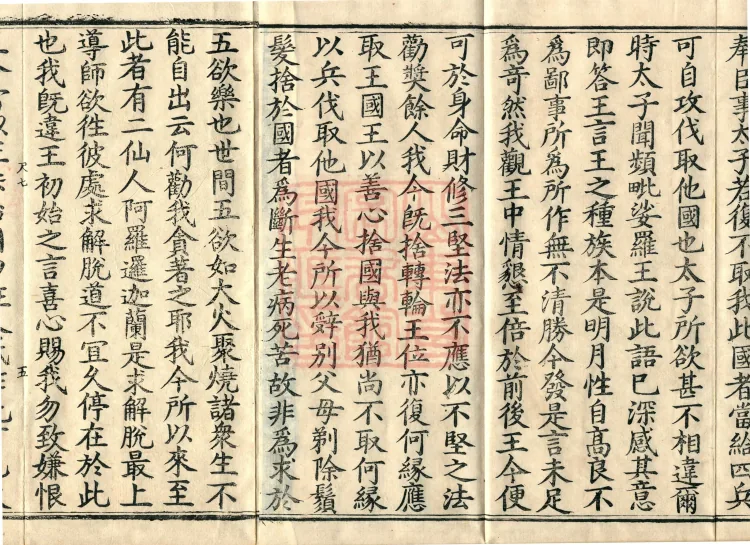 奉臣事太子若復不取我此國者當給四兵
可自攻伐取他國也太子所欲甚不相違爾
時太子聞頻毗娑羅王說此語已深感其意
即答王言王之種族本是明月性自高良不
為鄙事所為所作無不清勝今發是言未足
為奇然我觀王中情懇至倍於前後王今便
可於身命財修三堅法亦不應以不堅之法
勸奬餘人我今既捨轉輪王位亦復何緣應
取王國王以善心捨國與我猶尚不取何緣
以兵伐取他國我今所以辭別父母剃除鬚
髮捨於國者爲斷生老病死苦故非爲求於
五欲樂也世間五欲如大火聚燒諸衆生不
能自出云何勸我貪著之耶我今所以來至
此者有二仙人阿羅邏迦蘭是求解脫最上
導師欲往彼處求解脫道不宜久停在於此
尺七 五
也我既違王初始之言喜心賜我勿致嫌恨